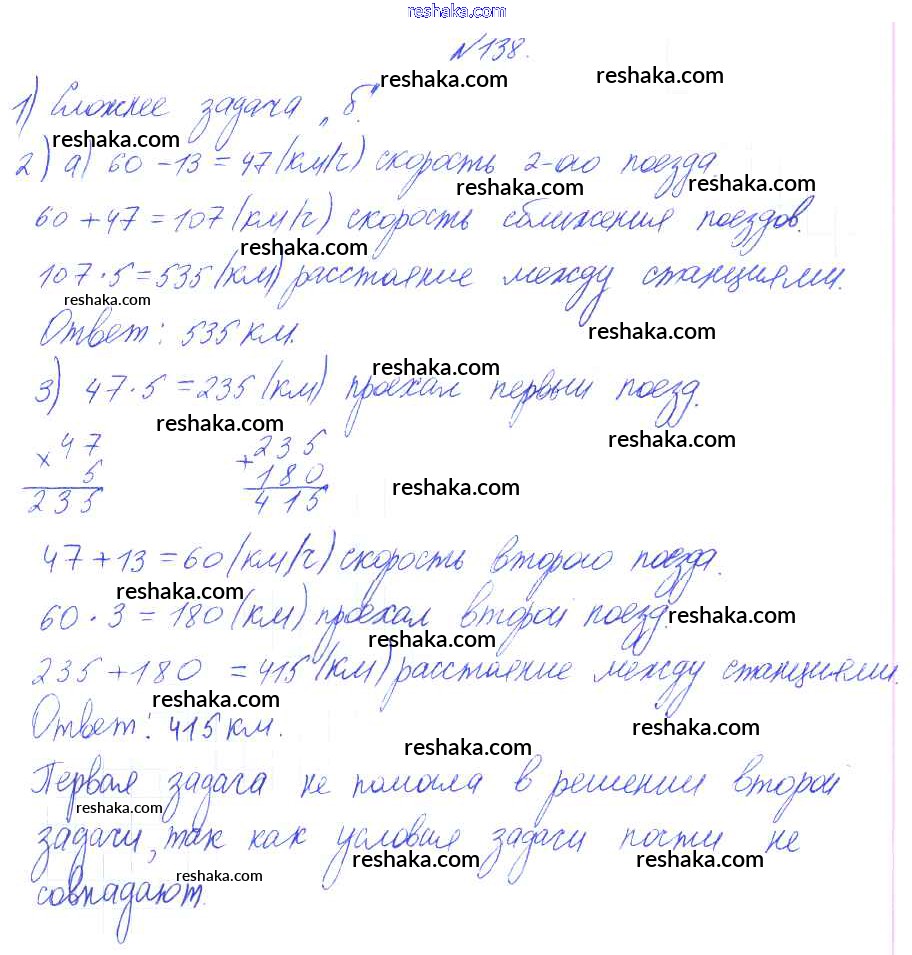 reshaka.com
№138.
reshaka.com reshaka.com
1) Сложнее задача „б".
reshaka.com
2) а) 60 - 13 = 47 (км/ч) скорость 2-ого поезда.
reshaka.com reshaka.com
60 + 47 = 107 (км/ч) скорость сближения поездов.
reshaka.com
107 · 5 = 535 (км) расстояние между станциями.
reshaka.com
Ответ: 535 км.
reshaka.com
reshaka.com
3) 47 · 5 = 235 (км) проехал первый поезд.
reshaka.com
reshaka.com
× 47 + 235
5 180
235 415
reshaka.com
47 + 13 = 60 (км/ч) скорость второго поезда.
reshaka.com
60 · 3 = 180 (км) проехал второй поезд.
reshaka.com
reshaka.com
235 + 180 = 415 (км) расстояние между станциями.
reshaka.com
Ответ: 415 км.
reshaka.com
reshaka.com
Первая задача не помогла в решении второй
reshaka.com
задачи, так как условия задачи почти не
reshaka.com reshaka.com
совпадают.
reshaka.com